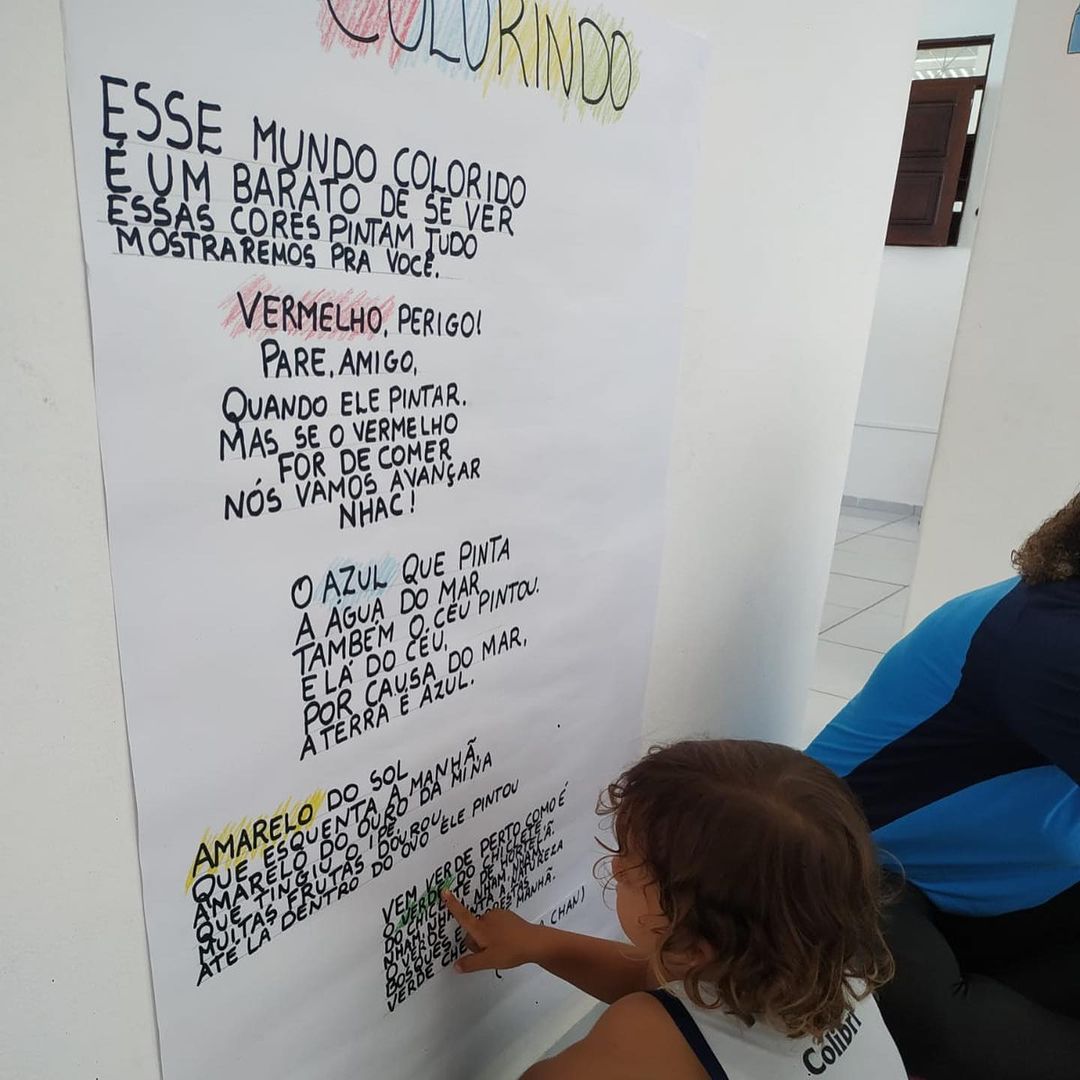 COLORINDO
ESSE MUNDO COLORIDO
É UM BARATO DE SE VER
ESSAS CORES PINTAM TUDO
MOSTRAREMOS PRA VOCÊ.
VERMELHO, PERIGO!
PARE, AMIGO,
QUANDO ELE PINTAR.
MAS SE O VERMELHO
FOR DE COMER
NÓS VAMOS AVANÇAR
NHAC!
O AZUL QUE PINTA
A ÁGUA DO MAR
TAMBÉM O CÉU PINTOU.
E LÁ DO CÉU,
POR CAUSA DO MAR,
A TERRA É AZUL.
AMARELO DO SOL
QUE ESQUENTA A MANHÃ,
AMARELO DO OURO DA MINA
QUE TINGIU O IPÊ
MUITAS FRUTAS DOUROU,
ATÉ LÁ DENTRO DO OVO ELE PINTOU
VEM VER DE PERTO COMO É
O VERDE DO CHICLETE
DO CHICLETE DE HORTELÃ.
NHAM, NHAM, NHAM, NHAM
O VERDE NATUREZA
BOSQUES
VERDE MANHÃ.
CHAN)
Colibri